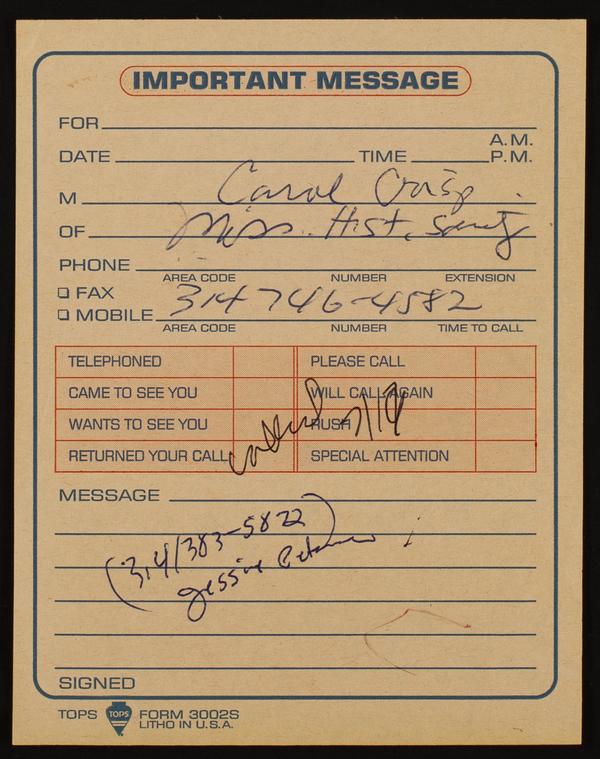 IMPORTANT MESSAGE
FOR
A.M.
DATE TIME P.M.
M Carol Crisp
OF Miss. Hist. Society
PHONE
AREA CODE NUMBER EXTENSION
FAX
MOBILE 314 746-4582
AREA CODE NUMBER TIME TO CALL
TELEPHONED PLEASE CALL
CAME TO SEE YOU WILL CALL AGAIN
WANTS TO SEE YOU RUSH
RETURNED YOUR CALL SPECIAL ATTENTION
called 7/19
MESSAGE
(314/383-5822)
Jessie
SIGNED
TOPS TOPS FORM 3002S
LITHO IN U.S.A.